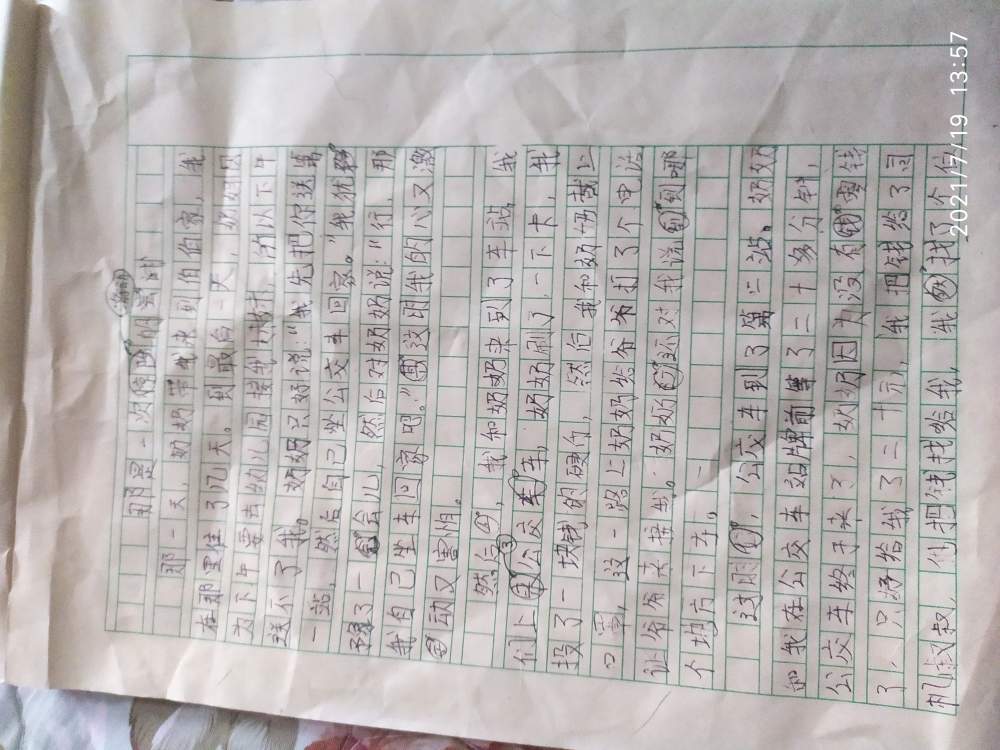 那是一次 明尝试
那一天，奶奶带我来到伯伯家，我
在那里住了几天。到最后一天，奶奶因
为下午要去幼儿园接我 ，所以下午
送不了我。奶奶只好说：“我先把你送
一站，然后自己坐公交车回家。”我犹
豫了一会儿，然后对奶奶说：“行，那
我自己坐车回家吧。”这时我的心又激
动又害怕。
然后，我和奶奶来到了车站，我
们上公交车，奶奶刷了一下卡，我
投了一块钱的硬币，然后我和奶奶就上
，这一路上奶奶给爷爷打了个电话
让爷爷来接我。奶奶还对我说到哪
个地方下车。
这时，公交车到了第二站。奶奶
和我在公交车站牌前等了二十多分钟，
公交车终于来了，奶奶因为没有零钱
了，只好给我了二十元，我把钱给了司
机叔叔，他把钱找给我，我找了个位
2021/7/19 13:57